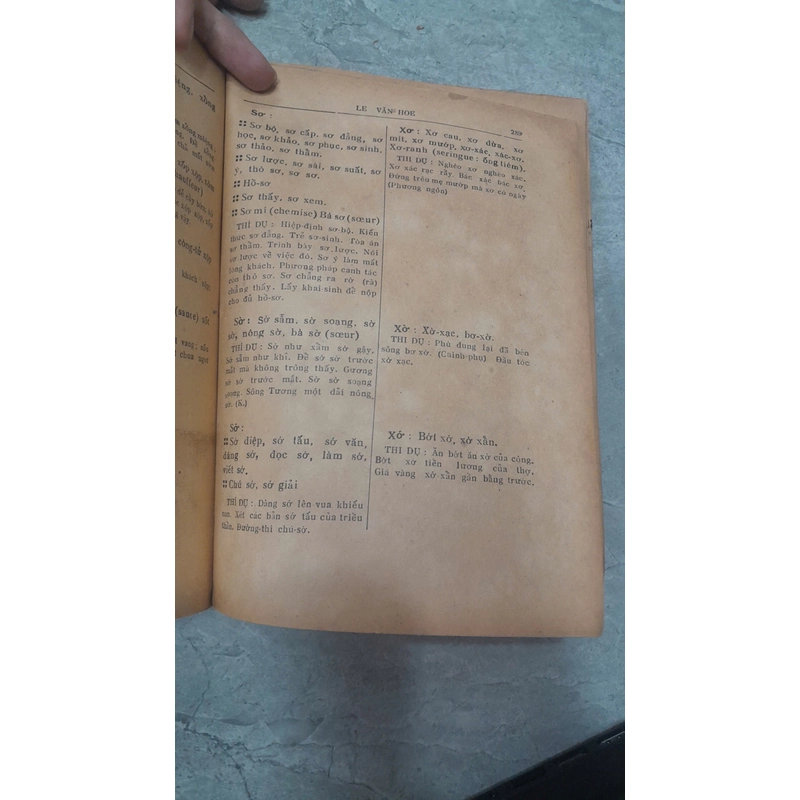 LE VĂN HOE
289
Sơ :
Sơ bộ, sơ cấp, sơ đẳng, sơ
học, sơ khảo, sơ phục, sơ sinh,
sơ thảo, sơ thẩm.
Sơ lược, sơ sài, sơ suất, sơ
ý, thô sơ, sơ sơ.
Hồ-sơ
Sơ thấy, sơ xem.
Sơ mi (chemise) Bà sơ (sœur)
THÍ DỤ : Hiệp-định sơ-bộ. Kiến
thức sơ đẳng. Trẻ sơ-sinh. Tòa án
sơ thẩm. Trình bày sơ lược. Nói
sơ lược về việc đó. Sơ ý làm mất
lòng khách. Phương pháp canh tác
còn thô sơ. Sơ chẳng ra rờ (rà)
chẳng thấy. Lấy khai sinh để nộp
cho đủ hồ-sơ.
Xơ : Xơ cau, xơ dừa, xơ
mít, xơ mướp, xơ-xác, xác-xơ.
Xơ-ranh (seringue : ống tiêm).
THÍ DỤ : Nghèo xơ nghèo xác.
Xơ xác rạc rầy. Bác xác bác xơ.
Đừng trêu mẹ mướp mà xơ có ngày
(Phương ngôn)
Sờ : Sờ sẫm, sờ soạng, sờ
sờ, nông sờ, bà sờ (sœur)
THÍ DỤ : Sờ như xẩm sờ gậy.
Sờ sẫm như khỉ. Để sờ sờ trước
mắt mà không trông thấy. Gương
sờ sờ trước mắt. Sờ sờ soạng
soạng. Sông Tương một dải nông
sờ. (K.)
Xờ : Xờ-xạc, bơ-xờ.
THÍ DỤ : Phù dung lại đã bên
sông bơ xờ. (Chinh-phụ) Đầu tóc
xờ xạc.
Sớ :
Sớ điệp, sớ tấu, sớ văn,
dâng sớ, đọc sớ, làm sớ,
viết sớ.
Chú sớ, sớ giải
THÍ DỤ : Dâng sớ lên vua khiếu
nan. Xét các bản sớ tấu của triều
thần. Đường-thi chú-sớ.
Xớ : Bớt xớ, xớ xẩn.
THÍ DỤ : Ăn bớt ăn xớ của công.
Bớt xớ tiền lương của thợ.
Giá vàng xớ-xẩn gần bằng trước.